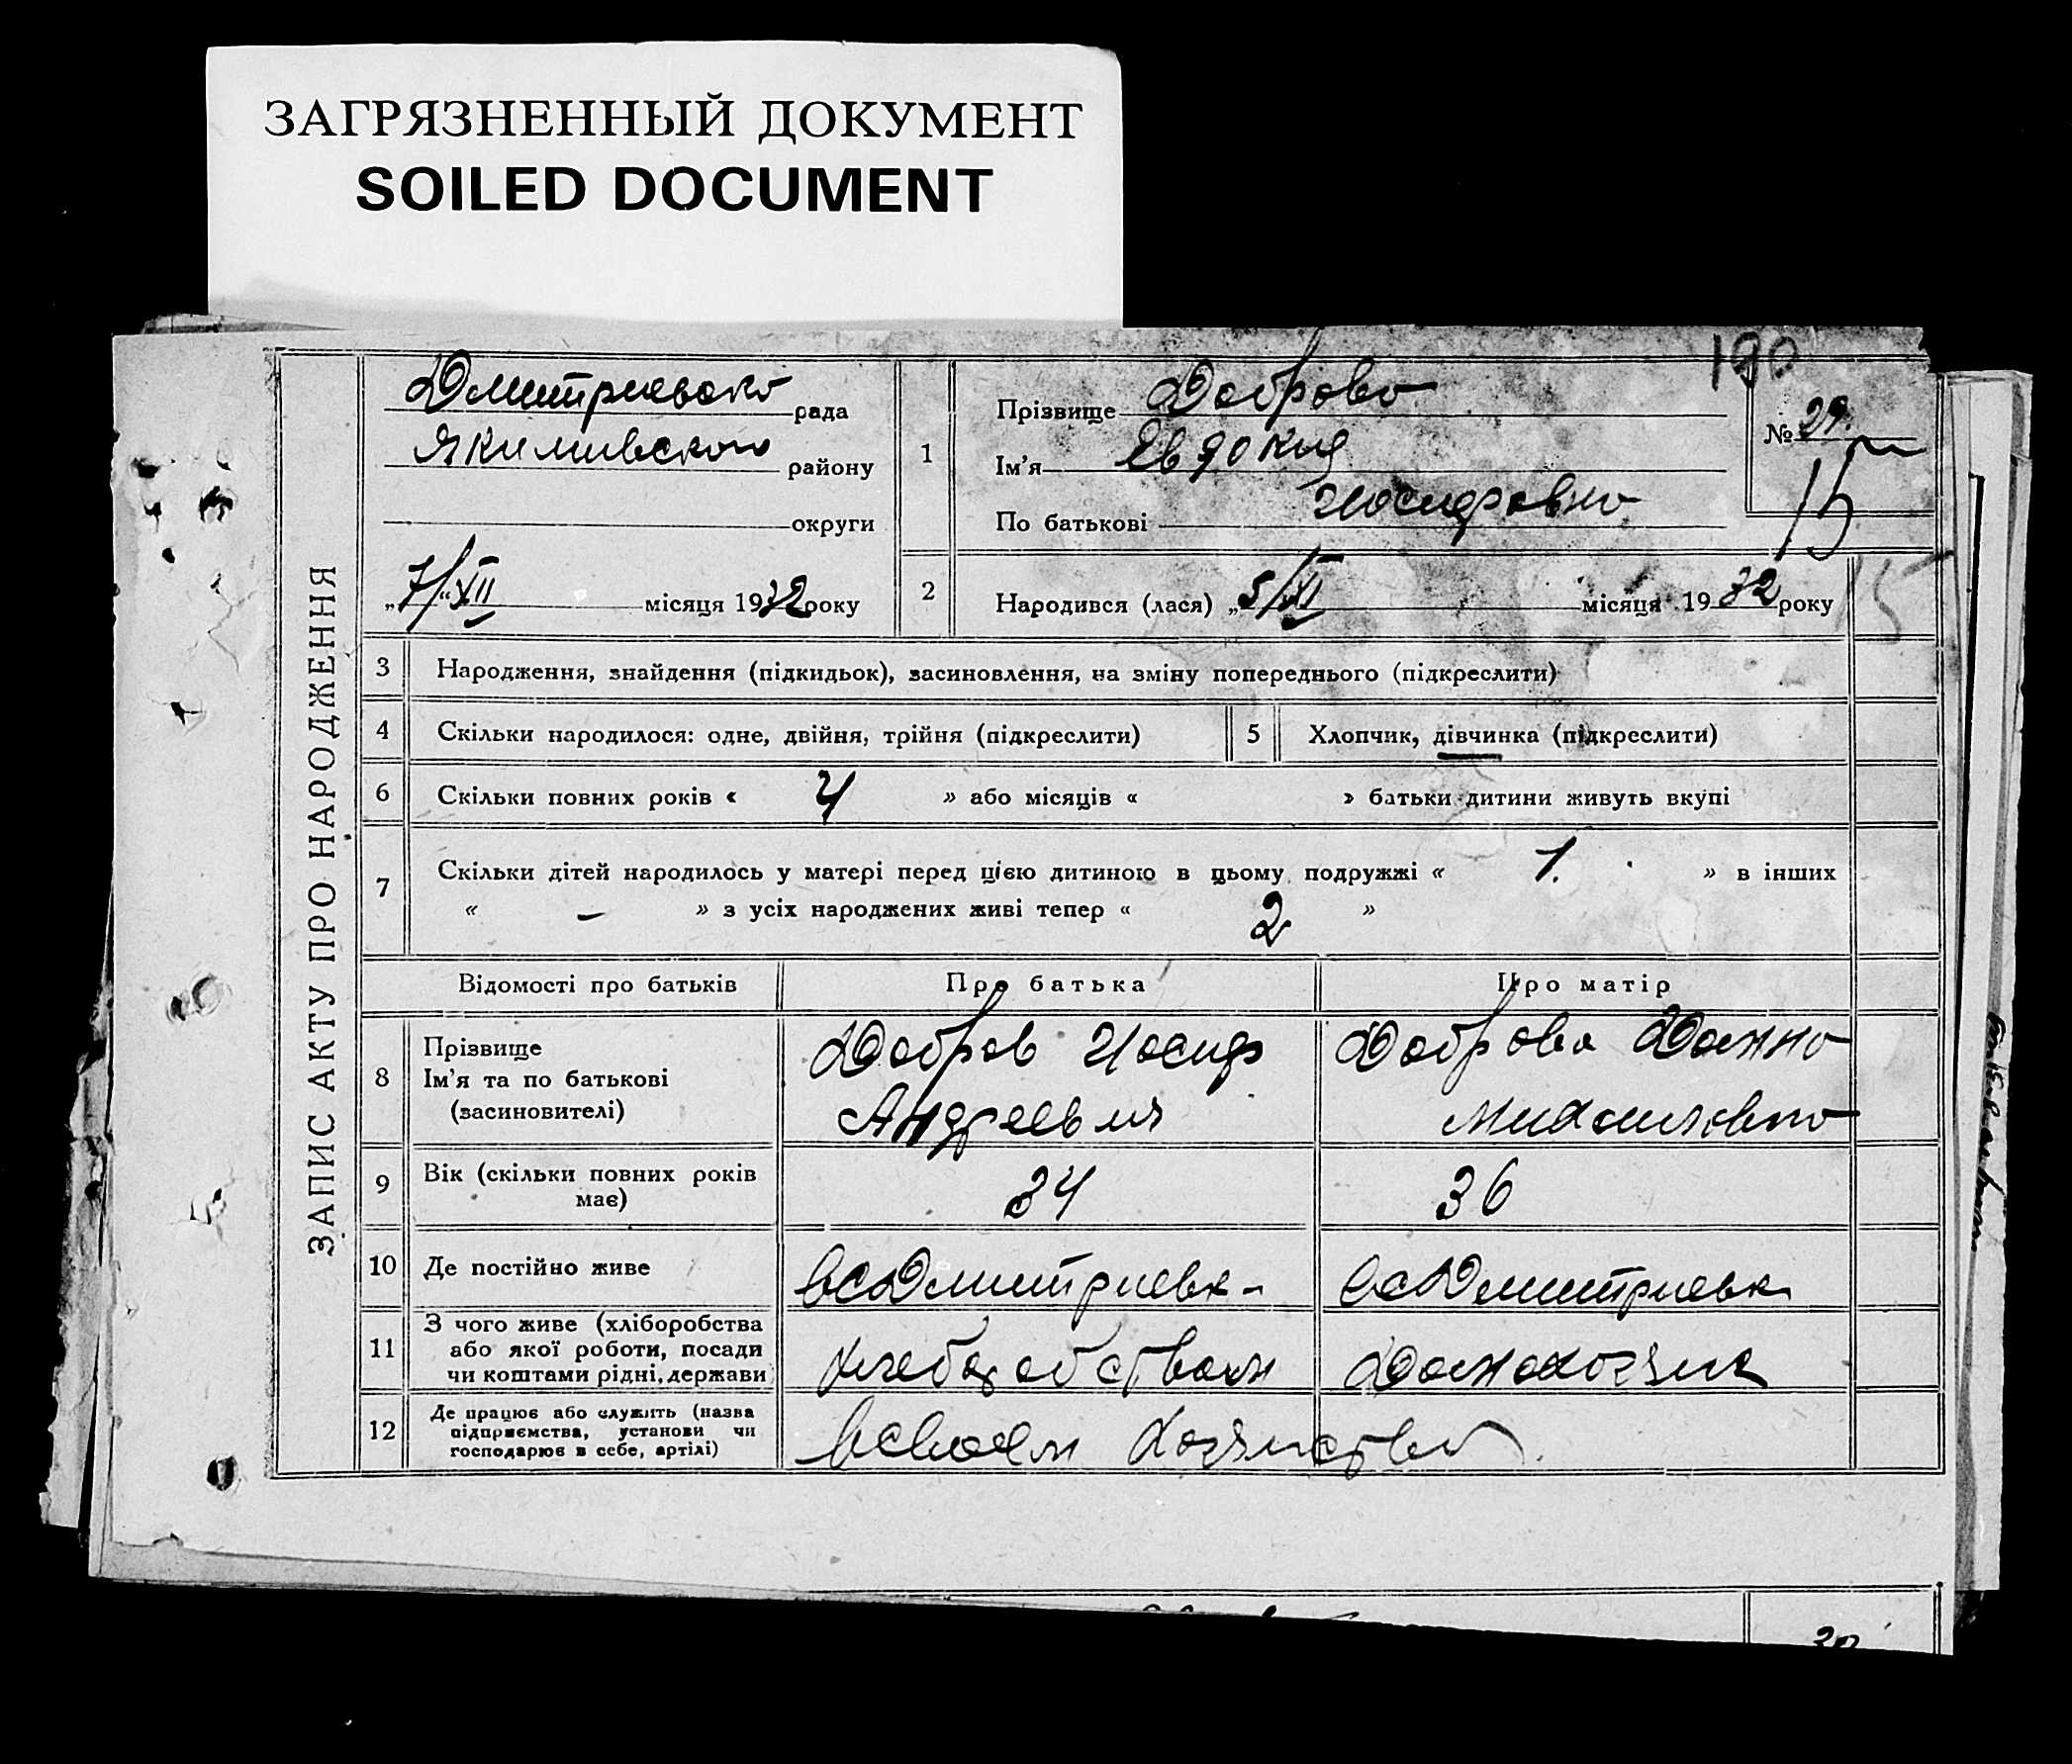 ЗАГРЯЗНЕННЫЙ ДОКУМЕНТ
SOILED DOCUMENT
190
ЗАПИС АКТУ ПРО НАРОДЖЕННЯ
Дмитриевско рада
Якимивского району
округи
„7/"XII місяця 1932 року
1
Прізвище Доброва
Ім'я Евдокия
По батькові Иосифовна
№ 29.
15
2 Народився (лася) „5/XI місяця 1932 року
15
3 Народження, знайдення (підкидьок), засиновлення, на зміну попереднього (підкреслити)
4 Скільки народилося: одне, двійня, трійня (підкреслити) 5 Хлопчик, дівчинка (підкреслити)
6 Скільки повних років « 4 » або місяців « » батьки дитини живуть вкупі
7 Скільки дітей народилось у матері перед цією дитиною в цьому подружжі « 1. » в інших
« — » з усіх народжених живі тепер « 2 »
Відомості про батьків Про батька Про матір
8 Прізвище
Ім'я та по батькові
(засиновителі)
Добров Иосиф
Андреевич
Доброва Домна
Михаиловна
9 Вік (скільки повних років
має)
34 36
10 Де постійно живе вс Дмитриевк- вс Дмитриевк
11 З чого живе (хліборобства
або якої роботи, посади
чи коштами рідні, держави
хлеборобством Домохозяик
12 Де працює або служить (назва
підприємства, установи чи
господарює в себе, артілі)
всвоем хозяйстви
30